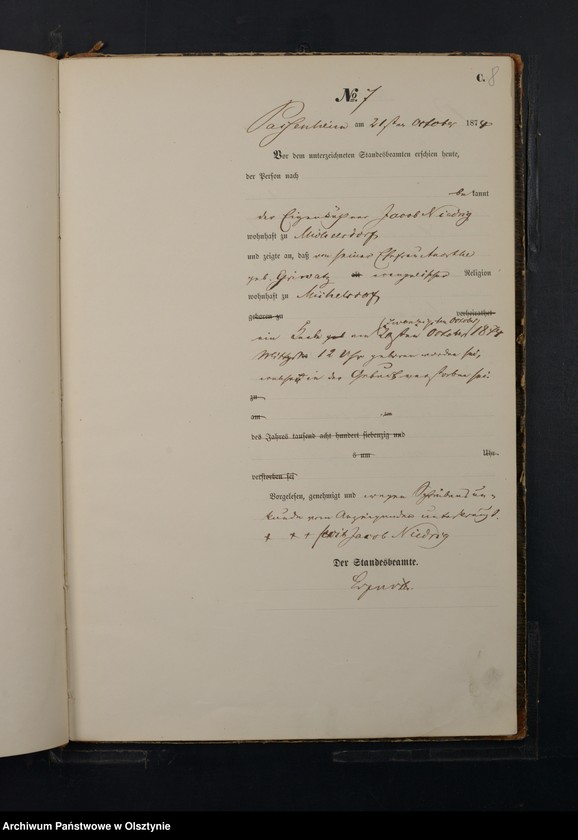 C. 8
№ 7
Passenheim am 21sten October 1874
Vor dem unterzeichneten Standesbeamten erschien heute,
der Person nach
bekannt
der Eigenkäthner Jacob Niedrig
wohnhaft zu Michelsdorf
und zeigte an, daß von seiner Ehefrau
geb. evangelischer Religion
wohnhaft zu Michelsdorf
geboren zu verheirathet
zwanzigsten October
ein Knabe am 20sten October 1874
Mittags 12 Uhr geboren worden sei,
welcher in der Geburt verstorben sei
zu
am ten
des Jahres tausend acht hundert siebenzig und
s um Uhr
verstorben sei
Vorgelesen, genehmigt und wegen Schreibensun-
kunde vom Anzeigenden unterkreuzt.
+ + + Jacob Niedrig
Der Standesbeamte.
Archiwum Państwowe w Olsztynie